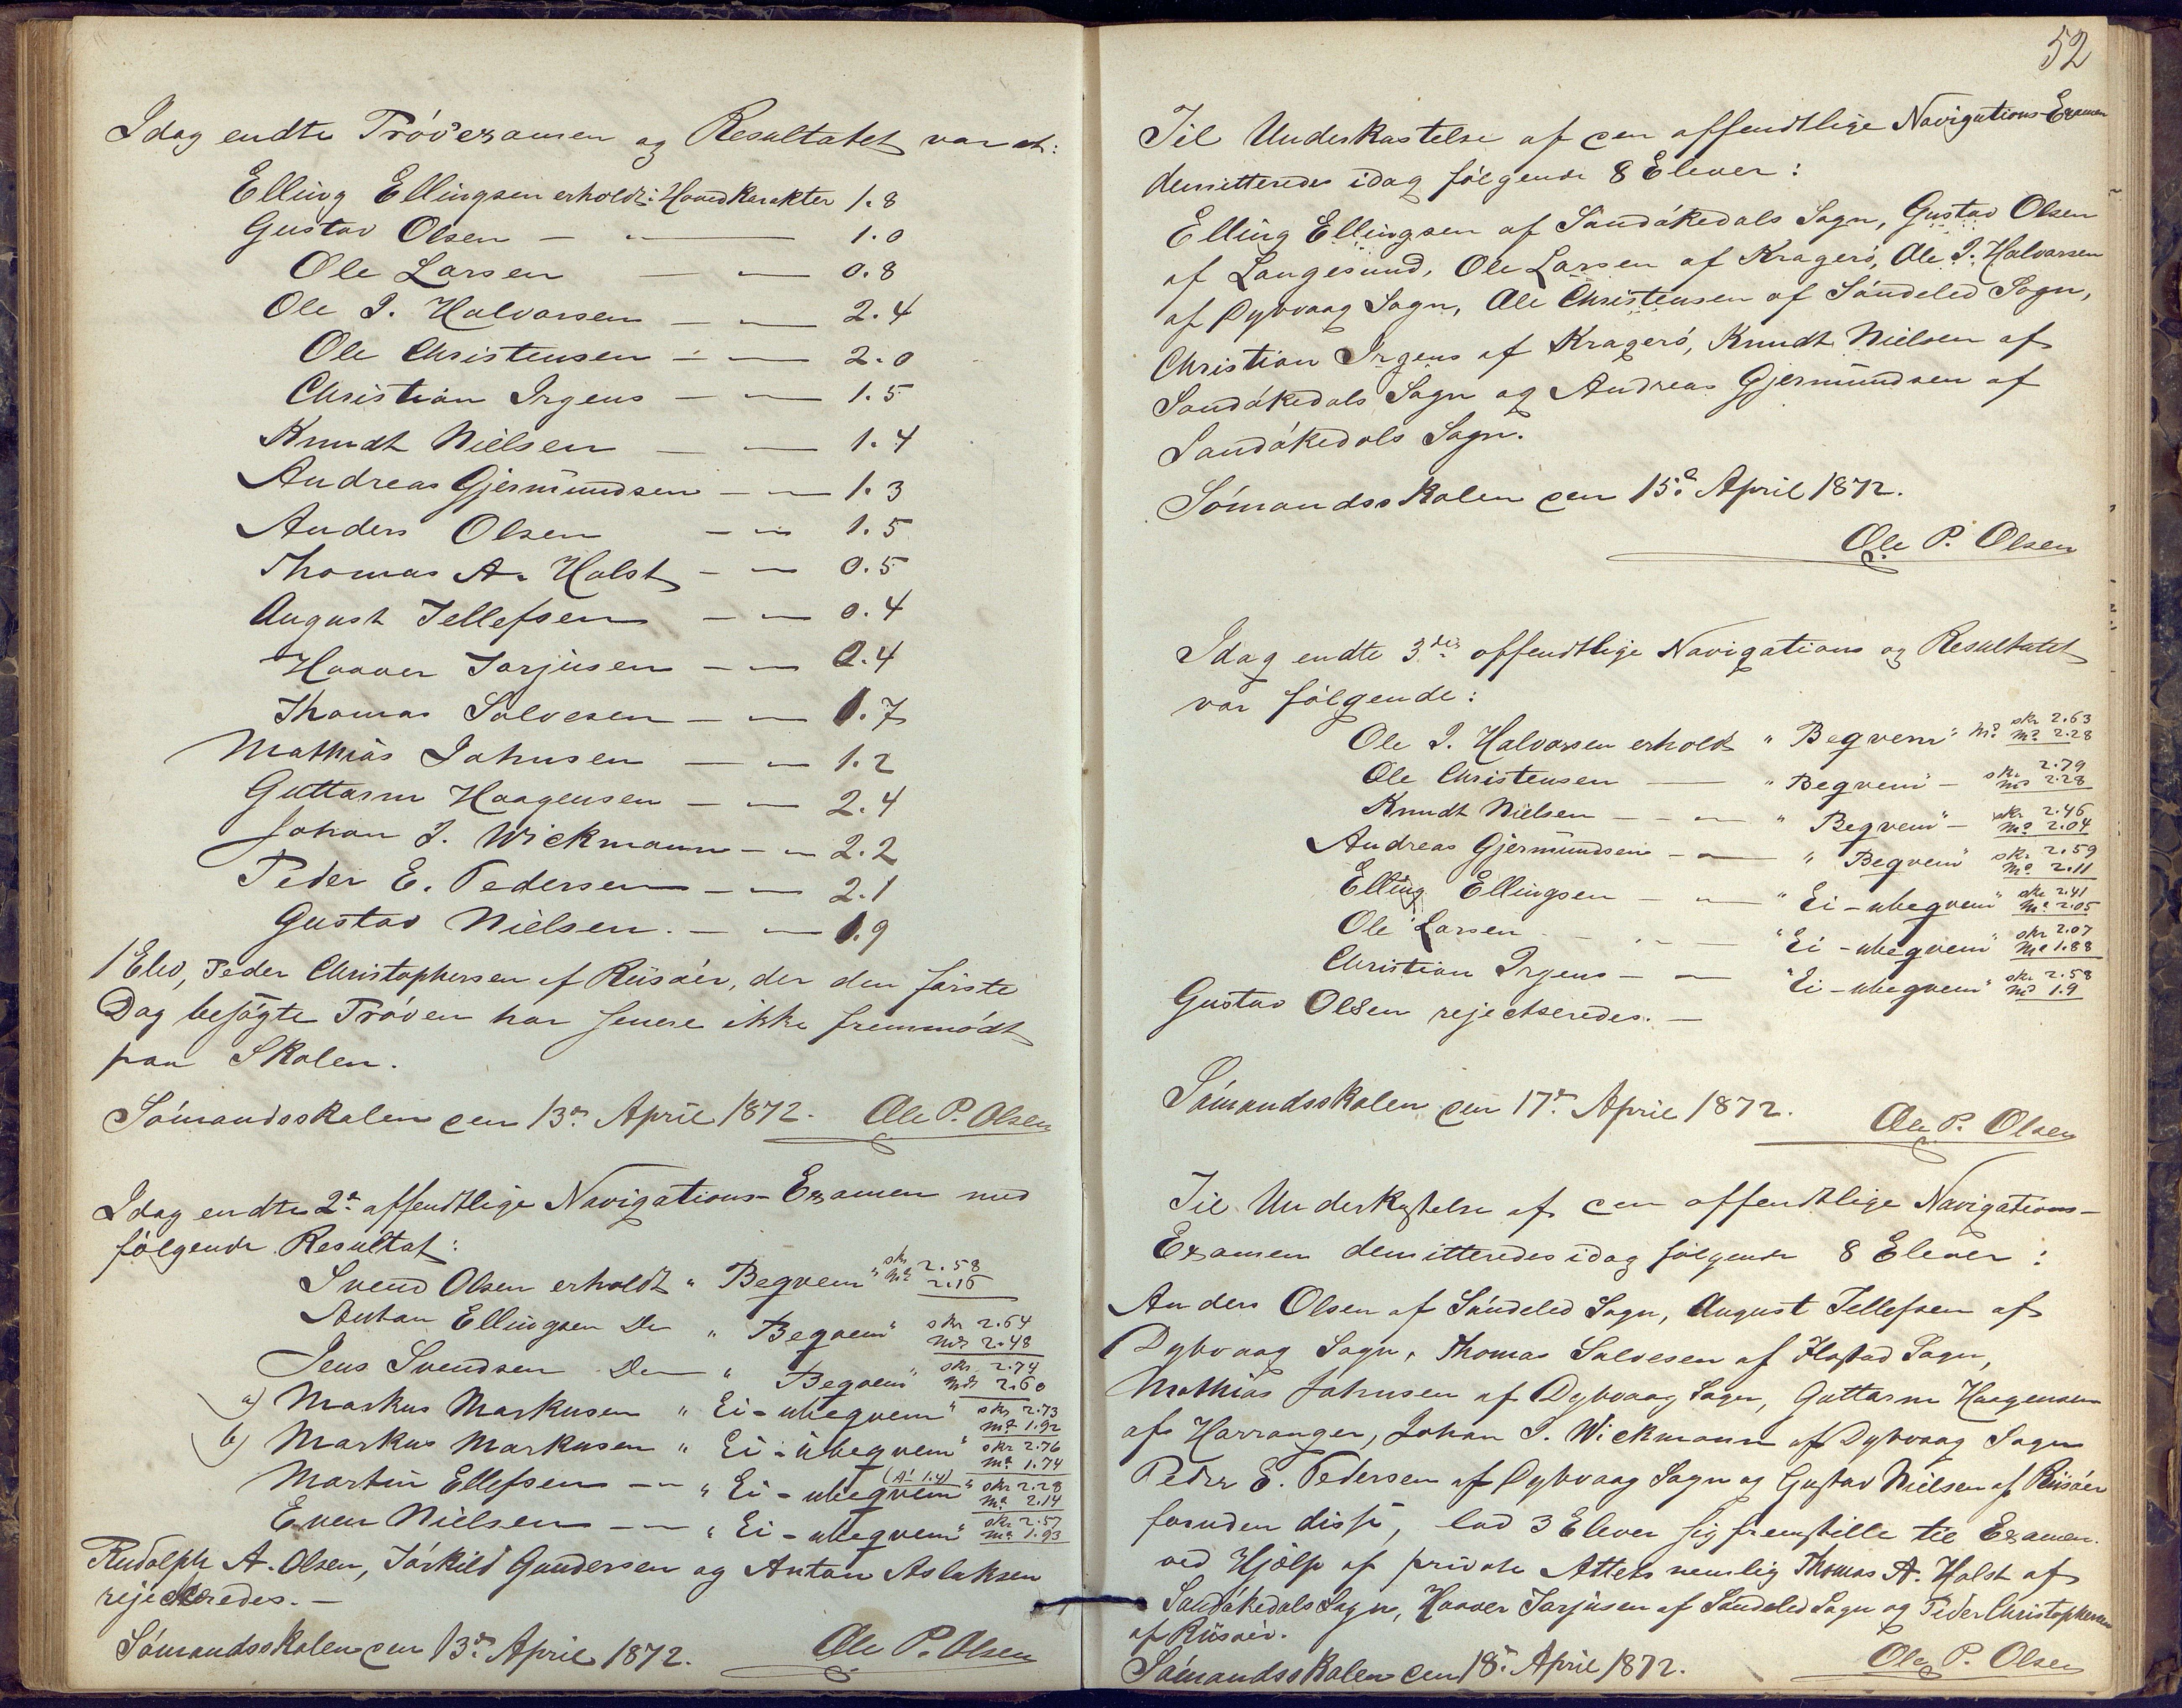 Idag endte Prøvexamen og Resultatet var et:
Elling Ellingsen erholdt: Hovedkarakter 1.8
Gustav Olsen — " — 1.0
Ole Larsen — " — 0.8
Ole J. Halvorsen — " — 2.4
Ole Christensen — " — 2.0
Christian Irgens — " — 1.5
Knudt Nielsen — " — 1.4
Andreas Gjermundsen — " — 1.3
Anders Olsen — " — 1.5
Thomas A. Holst — " — 0.5
August Tellefsen — " — 0.4
Haaver Tarjusen — " — 0.4
Thomas Salvesen — " — 1.7
Mathias Johnsen — " — 1.2
Guttorm Haagensen — " — 2.4
Johan J. Wickmann — " — 2.2
Peder E. Pedersen — " — 2.1
Gustav Nielsen. — " — 1.9
1 Elev, Peder Christophersen af Riisøer, der den første
Dag besøgte Prøven har senere ikke fremmødt
paa Skolen.
Sømandsskolen den 13de April 1872. Ole P. Olsen
Idag endte 2den offentlige Navigations-Examen med
følgende Resultat:
Svend Olsen erholdt " Begvem " skr 2.58 md 2.16
Anton Ellingsen Do " Begvem " skr 2.64 md 2.48
Jens Svendsen Do " Begvem " skr 2.74 md 2.60
a) Markus Markusen " Ei-ubegvem " skr 2.73 md 1.92
b) Markus Markusen " Ei-ubegvem " skr 2.76 md 1.74
Martin Ellefsen — " — " Ei-ubegvem (A: 1.4) " skr 2.28 md 2.14
Even Nielsen — " — " Ei-ubegvem " skr 2.57 md 1.93
Rudolph A. Olsen, Tørkild Gundersen og Anton Aslaksen
rejecteredes. —
Sømandsskolen den 13de April 1872. Ole P. Olsen
52
Til Underkastelse af den offentlige Navigations-Examen
demitteredes idag følgende 8 Elever:
Elling Ellingsen af Sandøkedals Sogn, Gustav Olsen
af Langesund, Ole Larsen af Kragerø, Ole J. Halvorsen
af Dybvaag Sogn, Ole Christensen af Søndeled Sogn,
Christian Irgens af Kragerø, Knudt Nielsen af
Sandøkedals Sogn og Andreas Gjermundsen af
Sandøkedals Sogn.
Sømandsskolen den 15de April 1872.
Ole P. Olsen
Idag endte 3die offentlige Navigations og Resultatet
var følgende:
Ole J. Halvorsen erholdt " Begvem " skr 2.63 md 2.28
Ole Christensen — " Begvem " — skr 2.79 md 2.28
Knudt Nielsen — " — " Begvem " — skr 2.46 md 2.04
Andreas Gjermundsen — " — " Begvem " skr 2.59 md 2.11
Elling Ellingsen — " — " Ei-ubegvem " skr 2.41 md 2.05
Ole Larsen — " — " Ei-ubegvem " skr 2.07 md 1.88
Christian Irgens — " — " Ei-ubegvem " skr 2.58 md 1.9
Gustav Olsen rejecteredes. —
Sømandsskolen den 17de April 1872.
Ole P. Olsen
Til Underkastelse af den offentlige Navigations-
Examen demitteredes idag følgende 8 Elever:
Anders Olsen af Søndeled Sogn, August Tellefsen af
Dybvaag Sogn, Thomas Salvesen af Flostad Sogn,
Mathias Johnsen af Dybvaag Sogn, Guttorm Haagensen
af Harranger, Johan J. Wickmann af Dybvaag Sogn
Peder E. Pedersen af Dybvaag Sogn og Gustav Nielsen af Riisøer
foruden disse, lod 3 Elever sig fremstille til Examen
ved Hjælp af private Attets nemlig Thomas A. Holst af
Sandøkedals Sogn, Haaver Tarjusen af Søndeled Sogn og Peder Christophersen
af Riisøer.
Sømandsskolen den 18de April 1872.
Ole P. Olsen